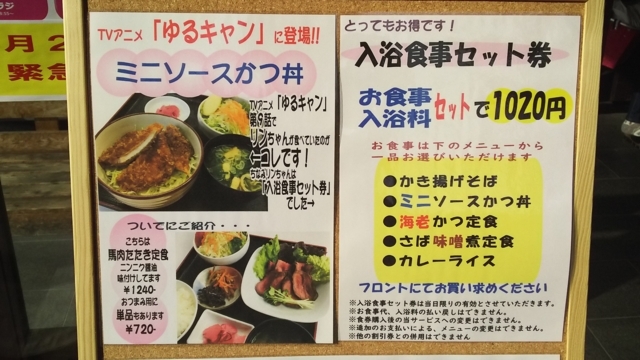 ラジ
月2
緊急
TVアニメ「ゆるキャン」に登場!!
ミニソースかつ丼
TVアニメ「ゆるキャン」
第9話で
リンちゃんが食べていたのが
←コレです!
ちなみリンちゃんは
「入浴食事セット券」
でした→
ついてにご紹介・・・
こちらは
馬肉たたき定食
ニンニク醤油
味付けしてます
¥1240-
おつまみ用に
単品もあります
¥720-
とってもお得です!
入浴食事セット券
お食事
入浴料
セットで1020円
お食事は下のメニューから
一品お選びいただけます
●かき揚げそば
●ミニソースかつ丼
●海老かつ定食
●さば味噌煮定食
●カレーライス
フロントにてお買い求めください
※入浴食事セット券は当日限りの有効とさせていただきます。
※お食事代、入浴料の払い戻しはできません。
※食券購入後の当サービスへの変更はできません。
※追加のお支払いによる、メニューの変更はできません。
※他の割引券との併用はできません